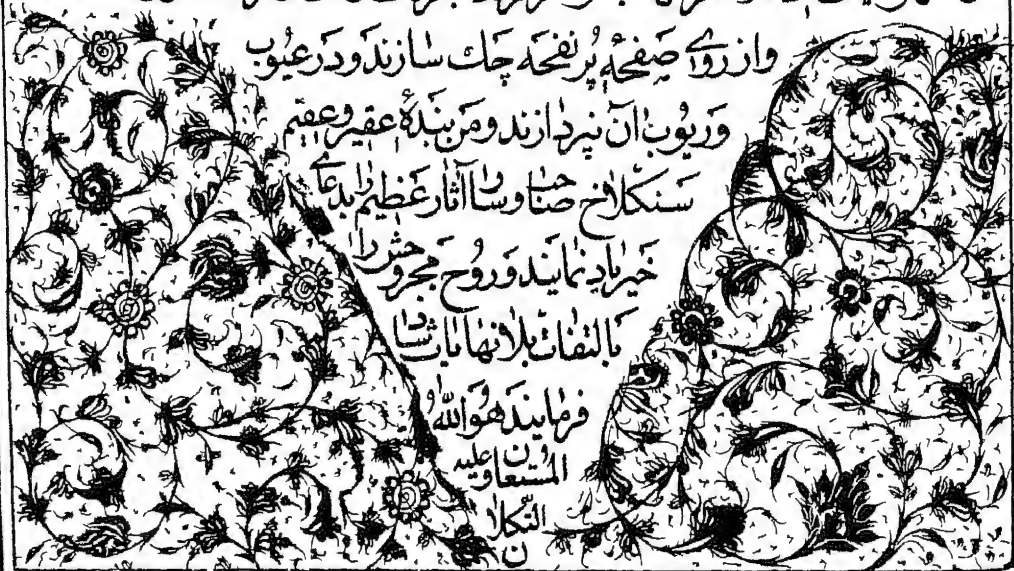 واز روی صفحهٔ پر نفحه چاك سازند و در عیوب
و ریوب آن نپردازند و من بندهٔ عقیر و عقیم
سنكلاخ صاحب آثار عظیم را بدعای
خیر یاد نمایند و روح مجروحش را
بالتفات بلا نهایات شاد
فرمایند هو الله
المستعان و علیه
التكلان